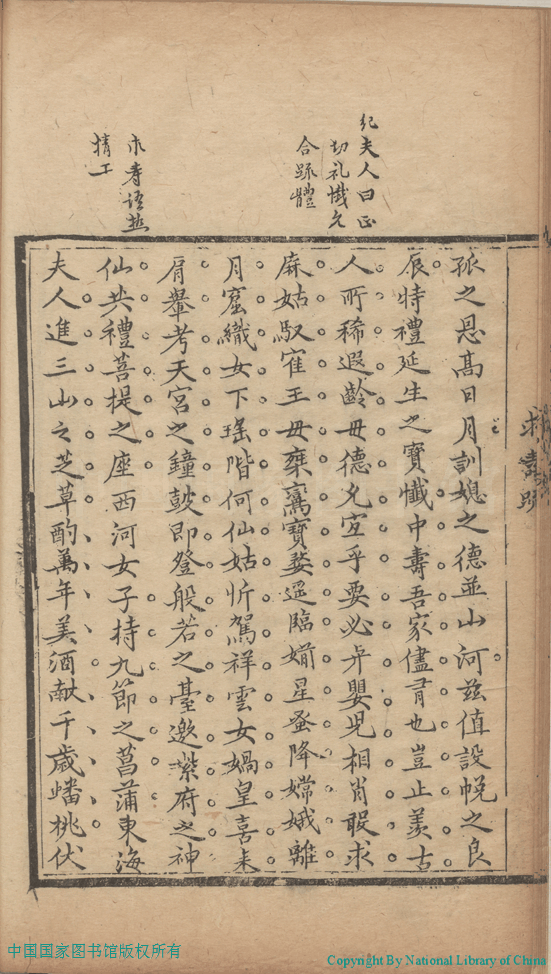 求壽疏
孤之恩高日月訓媳之德並山河兹值設帨之良
辰特禮延生之寶懺中壽吾家儘有也豈止羡古
人所稀遐齡毋德允宜乎要必與嬰児相肖敢求
麻姑馭寉王毋乗鸞寶婺遥臨婧星蚤降嫦娥離
月窟織女下瑶階何仙姑忻駕祥雲女媧皇喜来
肩轝考天宮之鐘鼓即登般若之臺邀紫府之神
仙共禮菩提之座西河女子持九節之菖蒲東海
夫人進三山之芝草酌萬年美酒献千歳蟠桃伏
紀夫人曰正
切礼懺之
合疏體
求寿語典
精工
中国国家图书馆版权所有
Copyright By National Library of China